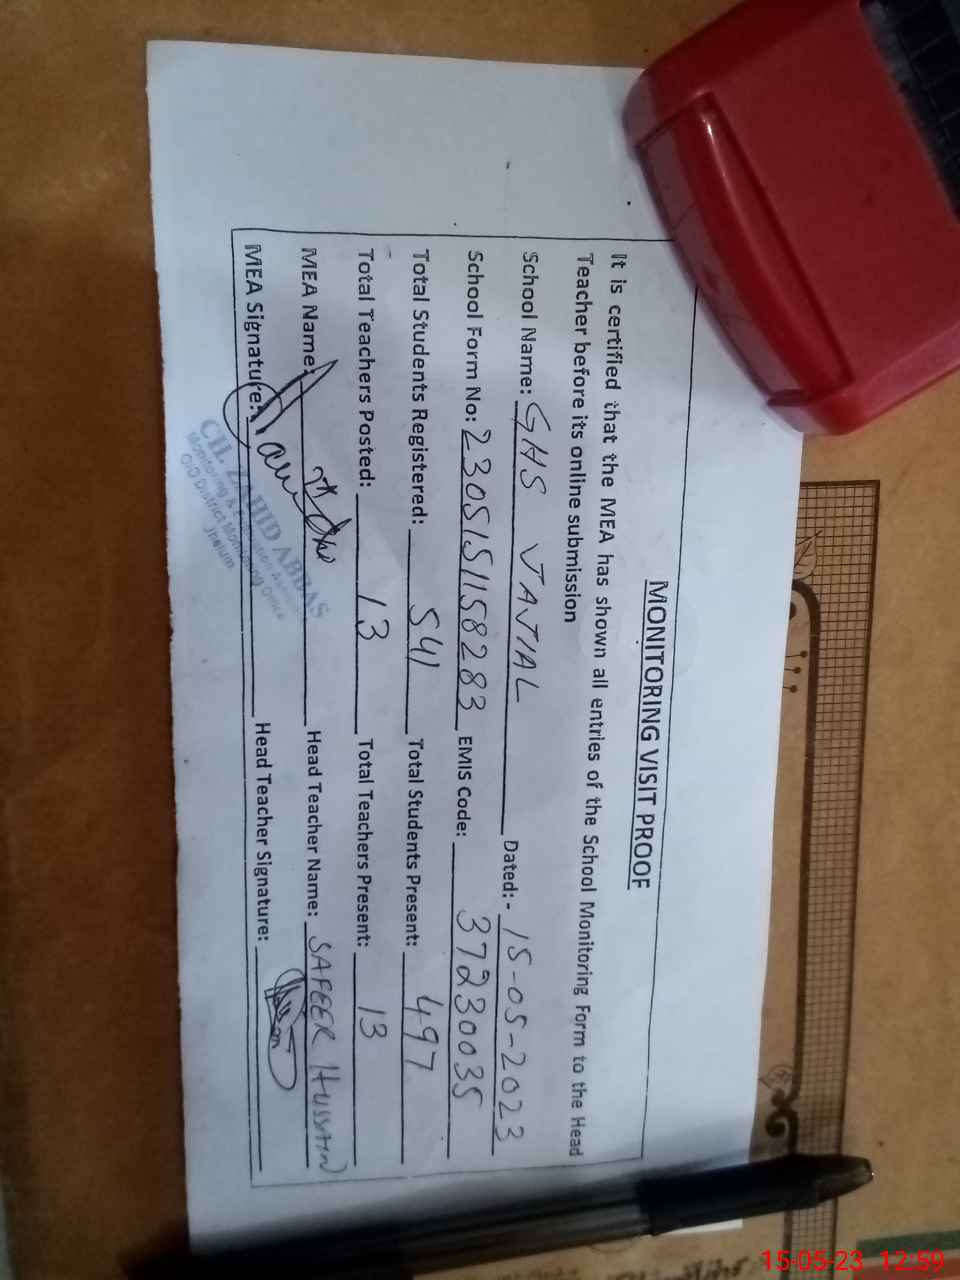 MONITORING VISIT PROOF
It is certified that the MEA has shown all entries of the School Monitoring Form to the Head
Teacher before its online submission
School Name: GHS JAJIAL Dated:- 15-05-2023
School Form No: 2305151158283 EMIS Code: 37230035
Total Students Registered: 541 Total Students Present: 497
Total Teachers Posted: 13 Total Teachers Present: 13
MEA Name: Head Teacher Name: SAFEER HUSSAIN
MEA Signature: Head Teacher Signature:
CH. ZAHID ABBAS
Monitoring & Evaluation Assistant
O/O District Monitoring Office
Jhelum
15-05-23 12:59